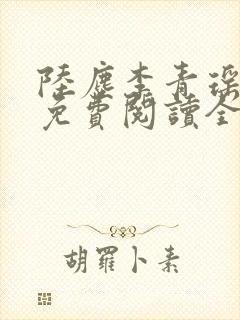 陸塵李青瑤
免費閱讀全
胡羅卜素